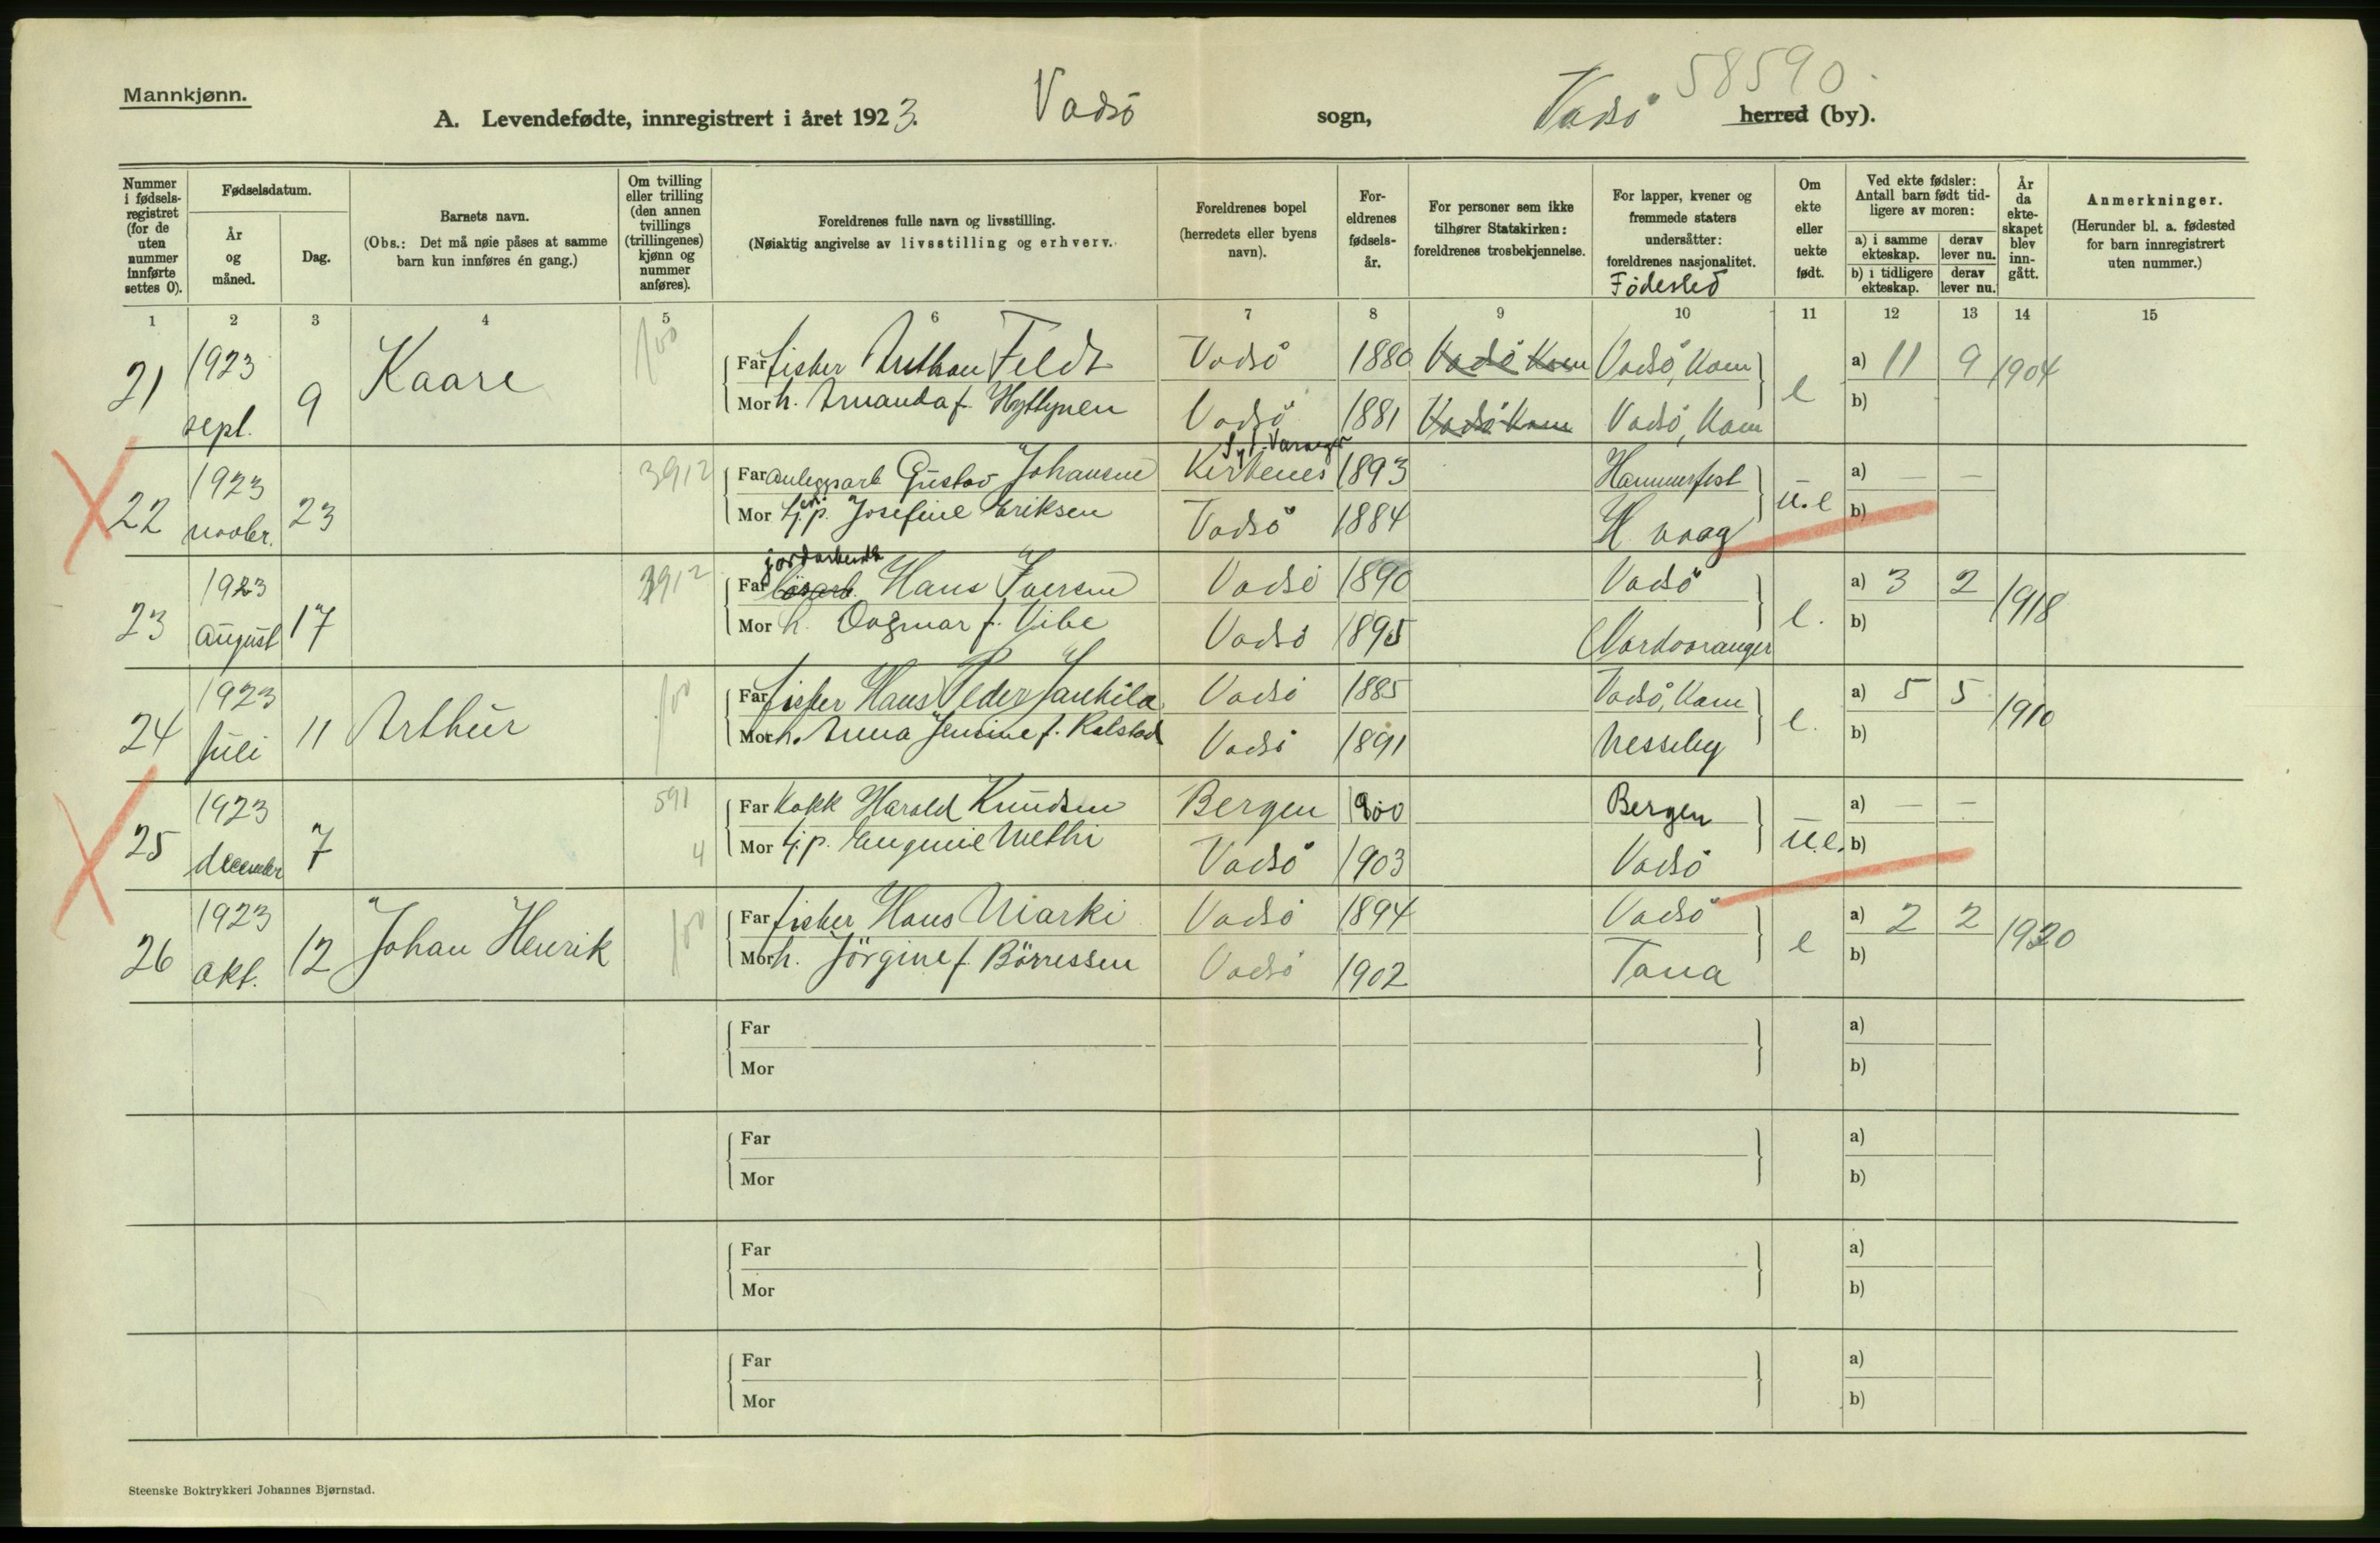 58590
Mannkjønn.
A. Levendefødte, innregistrert i året 1923. Vadsö sogn, Vadsö herred (by).
Nummer i fødselsregistret (for de uten nummer innførte settes 0).
Fødselsdatum.
År og måned.
Dag.
Barnets navn.
(Obs.: Det må nøie påses at samme barn kun innføres én gang.)
Om tvilling eller trilling (den annen tvillings (trillingenes) kjønn og nummer anføres).
Foreldrenes fulle navn og livsstilling.
(Nøiaktig angivelse av livsstilling og erhverv.
Foreldrenes bopel (herredets eller byens navn).
Foreldrenes fødselsår.
For personer som ikke tilhører Statskirken: foreldrenes trosbekjennelse.
For lapper, kvener og fremmede staters undersåtter: foreldrenes nasjonalitet.
Födested
Om ekte eller uekte født.
Ved ekte fødsler: Antall barn født tidligere av moren:
a) i samme ekteskap. derav lever nu.
b) i tidligere ekteskap. derav lever nu.
År da ekteskapet blev inngått.
Anmerkninger.
(Herunder bl. a. fødested for barn innregistrert uten nummer.)
1 2 3 4 5 6 7 8 9 10 11 12 13 14 15
21 1923 sept. 9 Kaare 100
Far fisker Feldt Vadsö 1880 Vadsö Kom Vadsö, Kom e a) 11 9 1904
Mor h. Amanda f. Hyttynen Vadsö 1881 Vadsö Kom Vadsö, Kom b)
22 1923 novbr. 23 3912
Syd-Varanger
Far anleggsarb Gustav Johansen Kirkenes 1893 Hammerfest u.e a) — —
Mor Josefine Eriksen Vadsö 1884 b)
23 1923 august 17 3912
jordarbeider
Far lösarb. Hans Iversen Vadsö 1890 Vadsö e. a) 3 2 1918
Mor h. Dagmar f. Vibe Vadsö 1895 Nordvaranger b)
24 1923 juli 11 Arthur 100
Far fisker Hans Peder Jankila Vadsö 1885 Vadsö, Kom e. a) 5 5 1910
Mor h. Anna Jensine f. Kalstad Vadsö 1891 Nesseby b)
25 1923 december 7 591 4
Far kokk Harald Knudsen Bergen 1900 Bergen u.e. a) — —
Mor t.j.p. Eugenie Methi Vadsö 1903 Vadsö b)
26 1923 okt. 12 Johan Henrik 100
Far fisker Hans Niarki Vadsö 1894 Vadsö e a) 2 2 1920
Mor h. Jörgine f. Börressen Vadsö 1902 Tana b)
Far a)
Mor b)
Far a)
Mor b)
Far a)
Mor b)
Far a)
Mor b)
Steenske Boktrykkeri Johannes Bjørnstad.